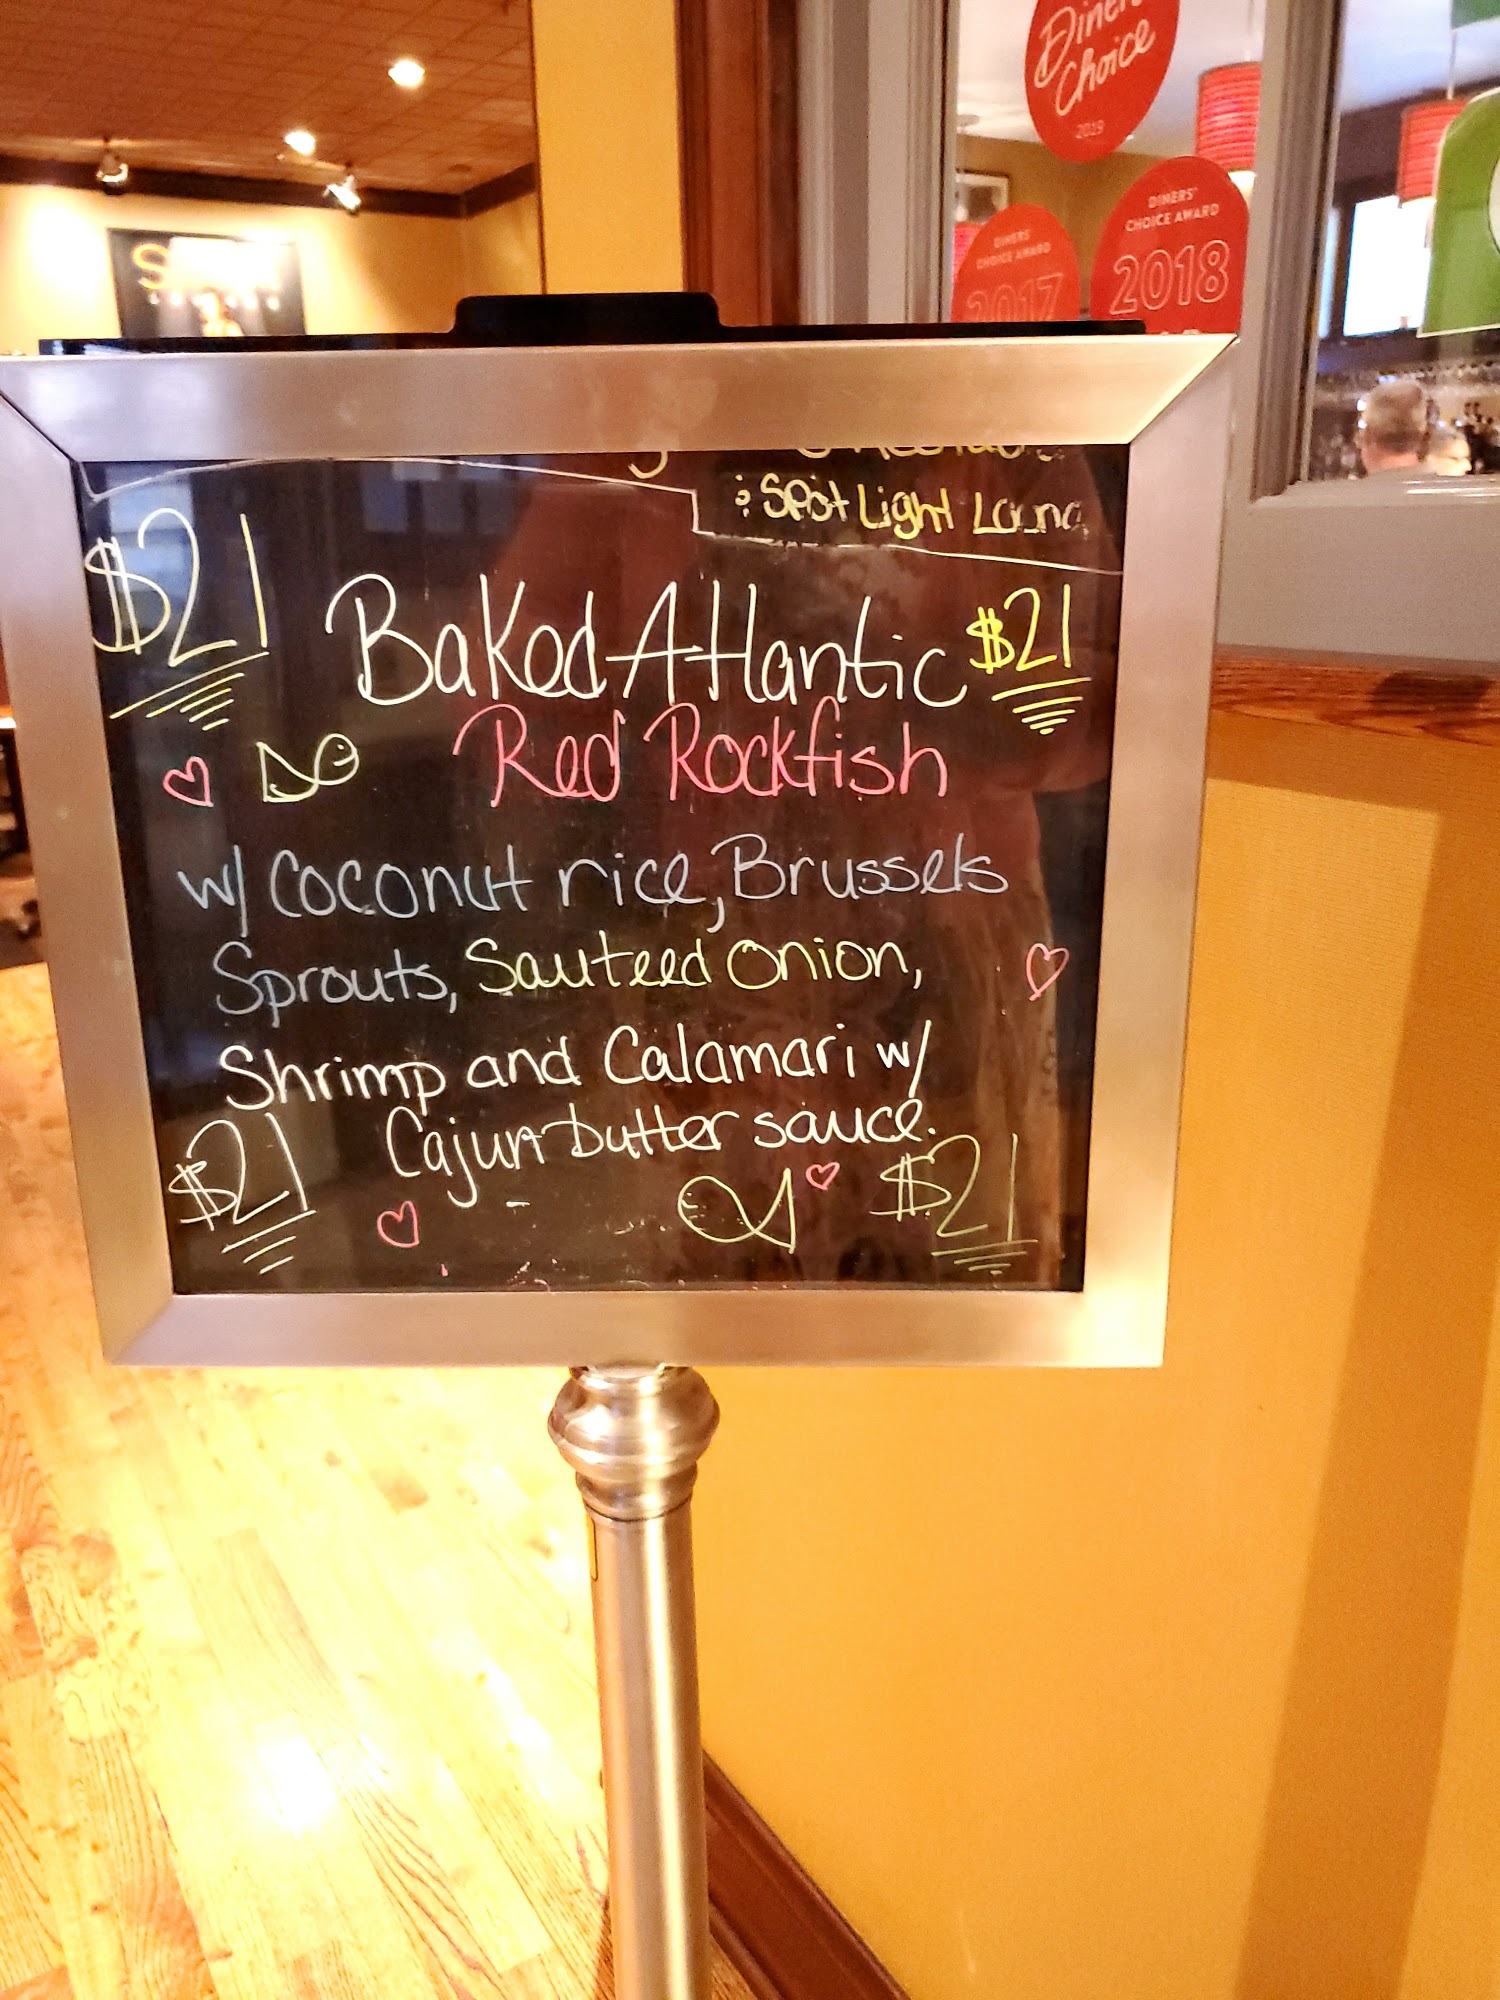 Diners'
Choice
2019
DINERS'
CHOICE AWARD
2018
DINERS'
CHOICE AWARD
2017
& Spot Light
$21
Baked Atlantic
$21
Red Rockfish
w/ Coconut rice, Brussels
Sprouts, Sauteed Onion,
Shrimp and Calamari w/
Cajun butter sauce.
$21
$21